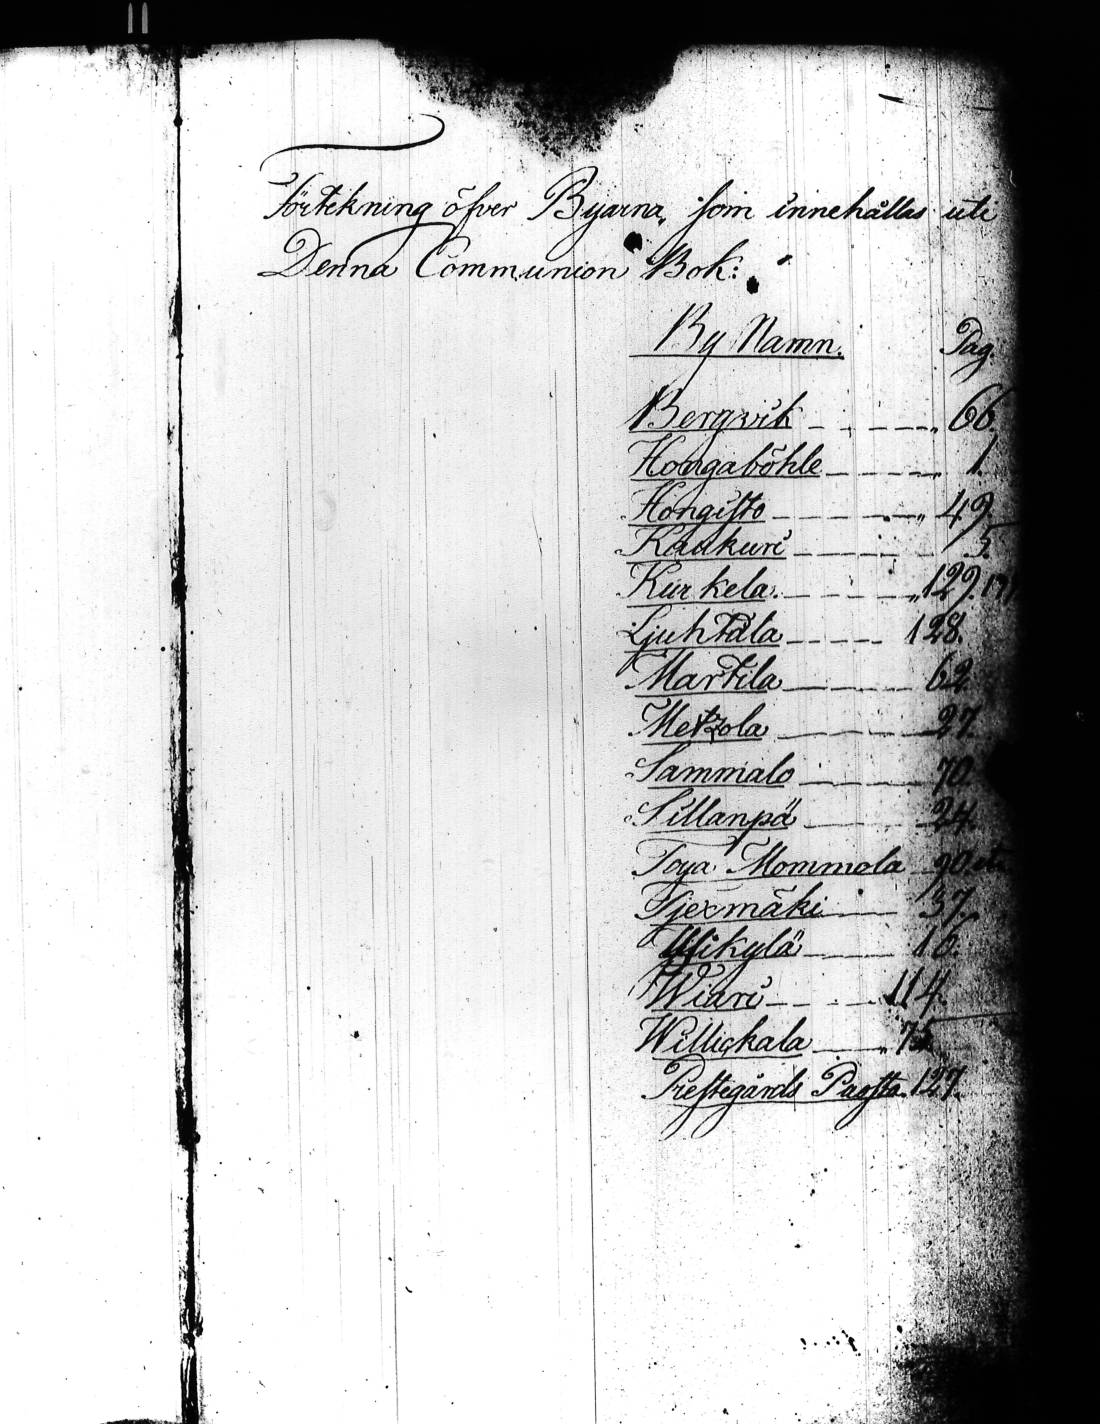 Förtekning öfver Byarna, som innehållas uti
Denna Communion Bok:
By Namn. Pag.
Bergvik 66.
Hongaböhle 1.
Hongisto 49.
Kaukuri 5.
Kurkela. 129.
Ljuhtala 128.
Martila 62
Metzola 27.
Sammalo 70
Sillanpä 24.
Toya Mommola 90
Tjexmäki 37.
Ylikylä 16.
Wiari 114.
Willickala 75.
Prestegårds 127.